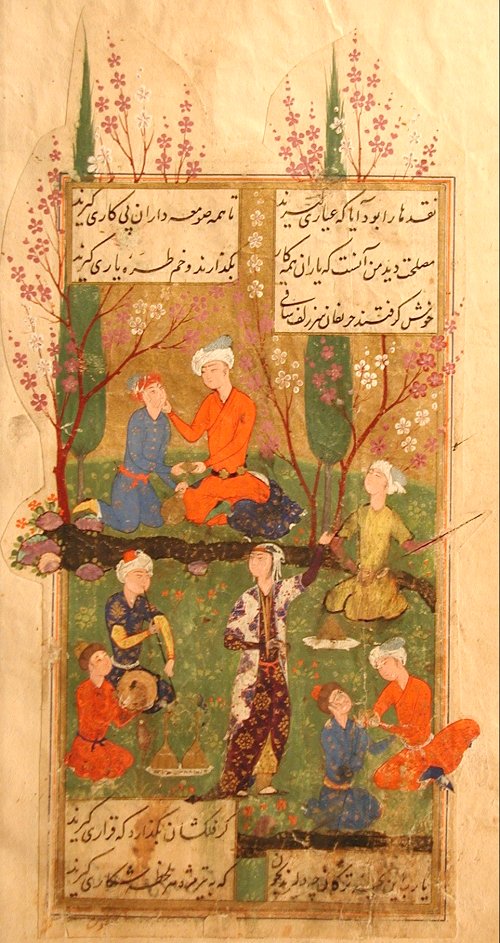 نقدها را بود آیا که عیاری گیرند
تا همه صومعه داران پی کاری گیرند
مصلحت دید من آنست که یاران همه کار
بگذارند و خم طره یاری گیرند
خوش گرفتند حریفان سر زلف ساقی
گر فلکشان بگذارد که قراری گیرند
یا رب این بچه ترکان چه دلیرند بخون
که به تیر مژه هر لحظه شکاری گیرند